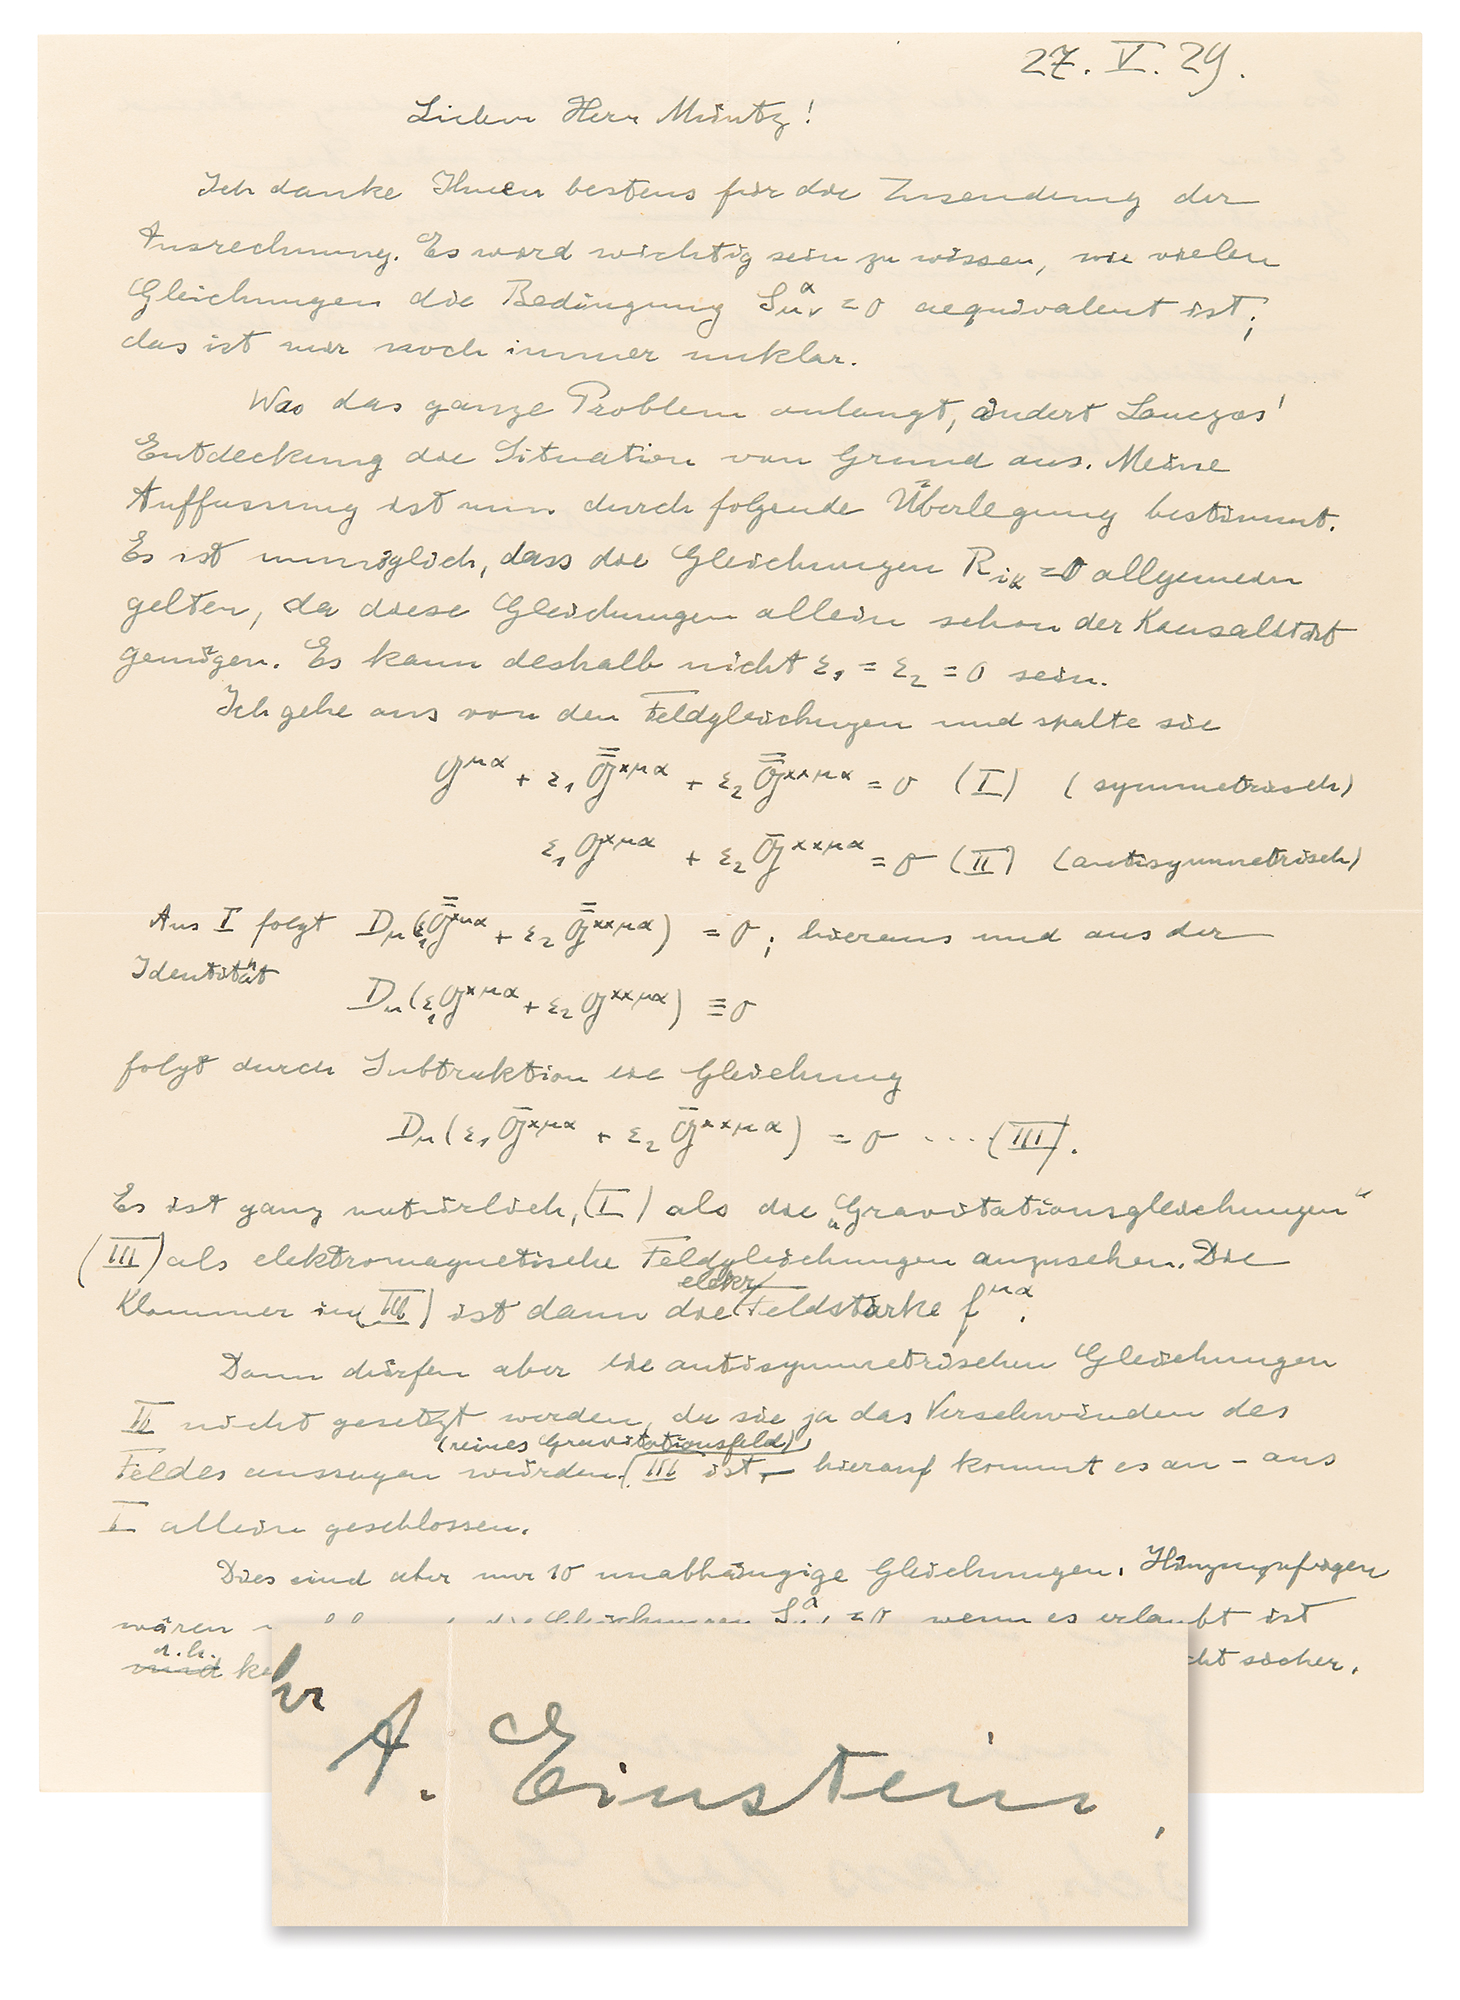 27. V. 29.
Lieber Herr Müntz!
Ich danke Ihnen bestens für die Zusendung der
Ausrechnung. Es wird wichtig sein zu wissen, wie vielen
Gleichungen die Bedingung S^α_μν = 0 aequivalent ist;
das ist mir noch immer unklar.
Was das ganze Problem anlangt, ändert Lanczos'
Entdeckung die Situation von Grund aus. Meine
Auffassung ist nun durch folgende Überlegung bestimmt.
Es ist unmöglich, dass die Gleichungen R_ik = 0 allgemein
gelten, da diese Gleichungen allein schon der Kausalität
genügen. Es kann deshalb nicht ε₁ = ε₂ = 0 sein.
Ich gehe aus von den Feldgleichungen und spalte sie
G^μα + ε₁ G̿^×μα + ε₂ G̿^××μα = 0 (I) (symmetrisch)
ε₁ G^×μα + ε₂ G̅^××μα = 0 (II) (antisymmetrisch)
Aus I folgt D_μ(ε₁ G̿^×μα + ε₂ G̿^××μα) = 0; hieraus und aus der
Identität
D_μ(ε₁ G^×μα + ε₂ G^××μα) ≡ 0
folgt durch Subtraktion die Gleichung
D_μ(ε₁ G̅^×μα + ε₂ G̅^××μα) = 0 ···· (III).
Es ist ganz natürlich, (I) als die „Gravitationsgleichungen“
(III) als elektromagnetische Feldgleichungen anzusehen. Die
Klammer in (III) ist dann die elektr. Feldstärke f^μα.
Dann dürfen aber die antisymmetrischen Gleichungen
II nicht gesetzt werden, da sie ja das Verschwinden des
Feldes aussagen würden (reines Gravitationsfeld). III ist – hierauf kommt es an – aus
I allein geschlossen.
Dies sind aber nur 10 unabhängige Gleichungen. Hinzuzufügen
wären die Gleichungen S^α_μν = 0, wenn es erlaubt ist
d.h. cht sicher.
hr
A. Einstein.